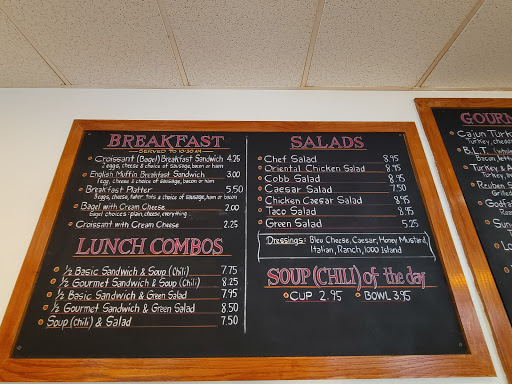 BREAKFAST
SERVED TO 10:30 AM
Croissant (Bagel) Breakfast Sandwich 4.25
2 eggs, cheese & choice of sausage, bacon or ham
English Muffin Breakfast Sandwich 3.00
1 egg, cheese & choice of sausage, bacon or ham
Breakfast Platter 5.50
2 eggs, cheese, tater tots & choice of sausage, ham or bacon
Bagel with Cream Cheese 2.00
Bagel choices: plain, cheese, everything
Croissant with Cream Cheese 2.25
LUNCH COMBOS
½ Basic Sandwich & Soup (Chili) 7.75
½ Gourmet Sandwich & Soup (Chili) 8.25
½ Basic Sandwich & Green Salad 7.95
½ Gourmet Sandwich & Green Salad 8.50
Soup (Chili) & Salad 7.50
SALADS
Chef Salad 8.95
Oriental Chicken Salad 8.95
Cobb Salad 8.95
Caesar Salad 7.50
Chicken Caesar Salad 8.95
Taco Salad 8.95
Green Salad 5.25
Dressings: Bleu Cheese, Caesar, Honey Mustard,
Italian, Ranch, 1000 Island
SOUP (CHILI) of the day
CUP 2.95 BOWL 3.95
GOURM
Cajun Turk
Turkey, chedd
B.L.T.
Bacon, lett
Turkey &
Turkey,
Reuben S
Grilled
Godfa